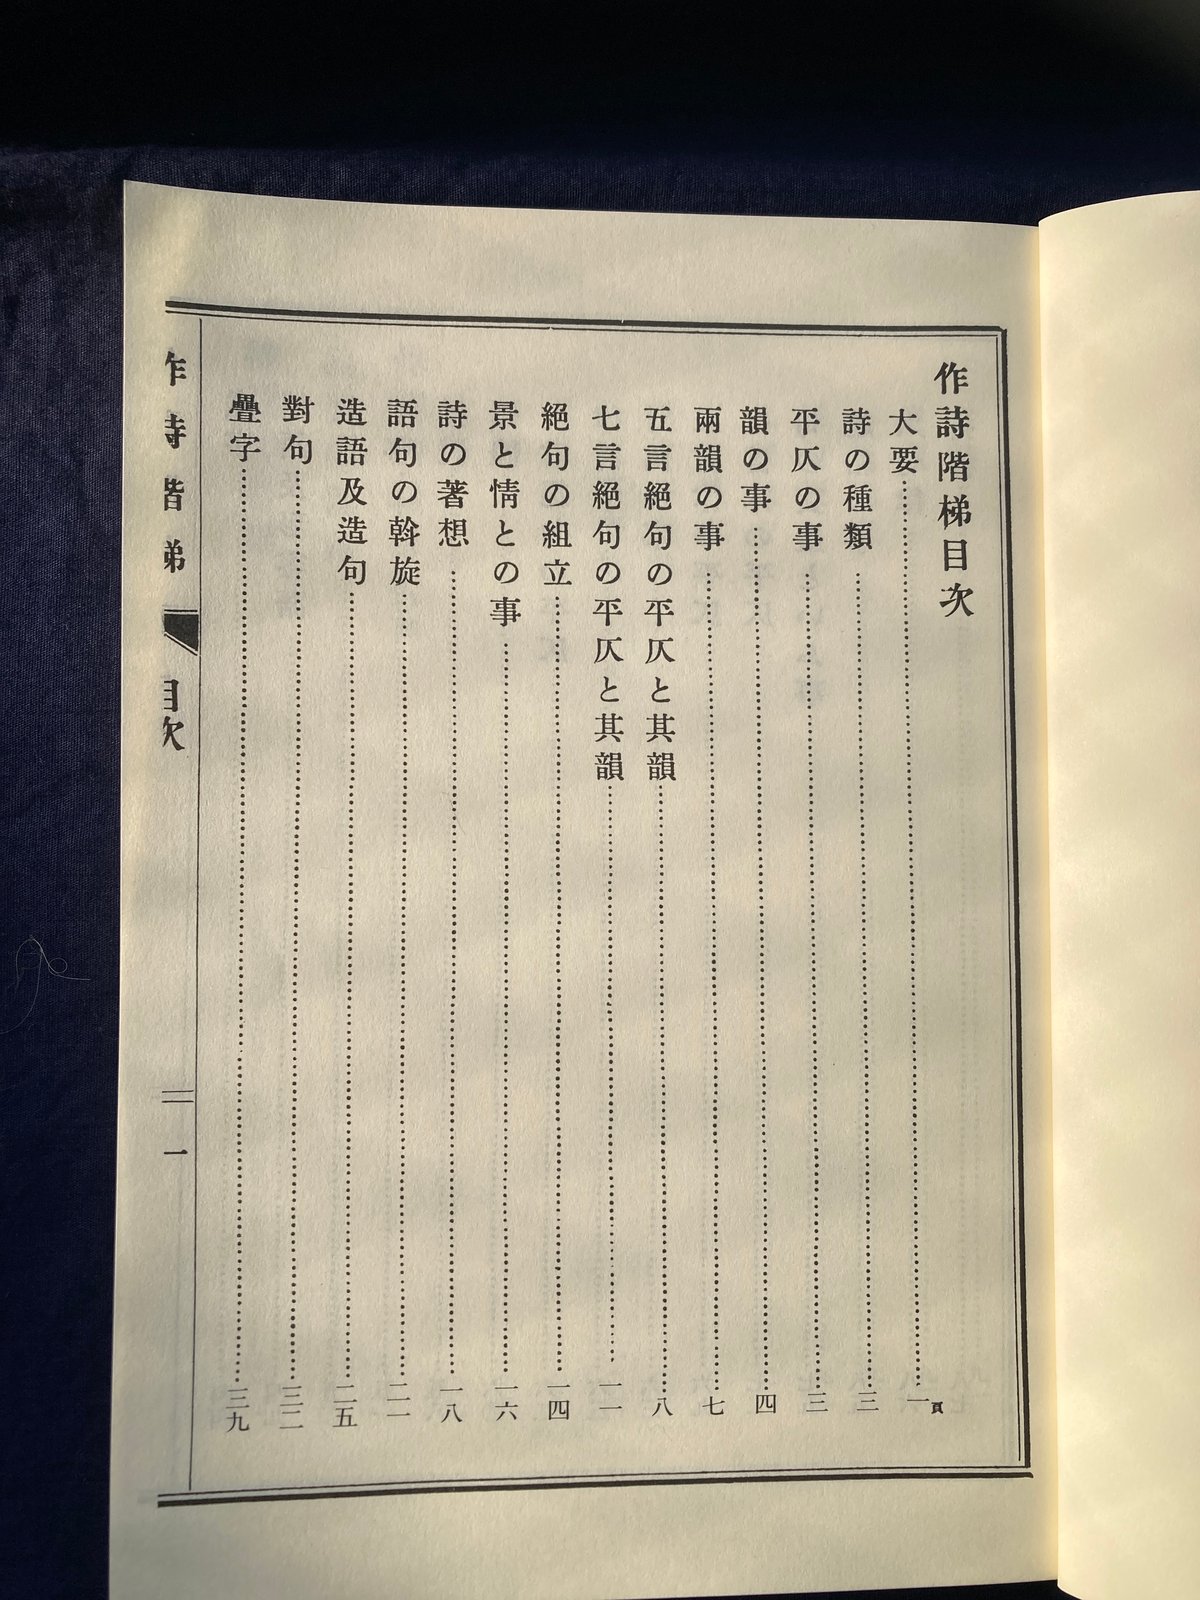 作詩階梯目次
大要…………一頁
詩の種類…………三
平仄の事…………三
韻の事…………四
兩韻の事…………七
五言絕句の平仄と其韻…………八
七言絕句の平仄と其韻…………一一
絕句の組立…………一四
景と情との事…………一六
詩の著想…………一八
語句の斡旋…………二一
造語及造句…………二五
對句…………三二
疊字…………三九
作詩階梯 目次 一